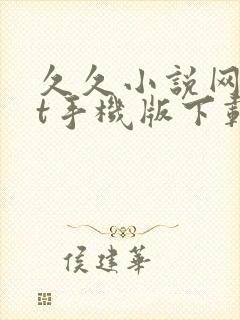 久久小説网
t手機版下載
侯建華